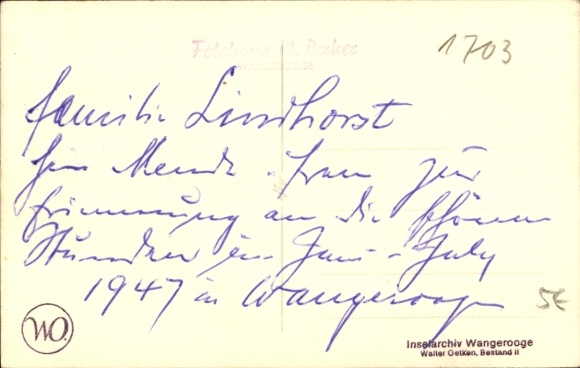 Fotohaus W. Becker
WANGEROOGE
1703
Familie Lindhorst
zur
Erinnerung an die schönen
Stunden im Juni - July
1947 in Wangerooge
5€
WO.
Inselarchiv Wangerooge
Walter Oetken, Bestand II